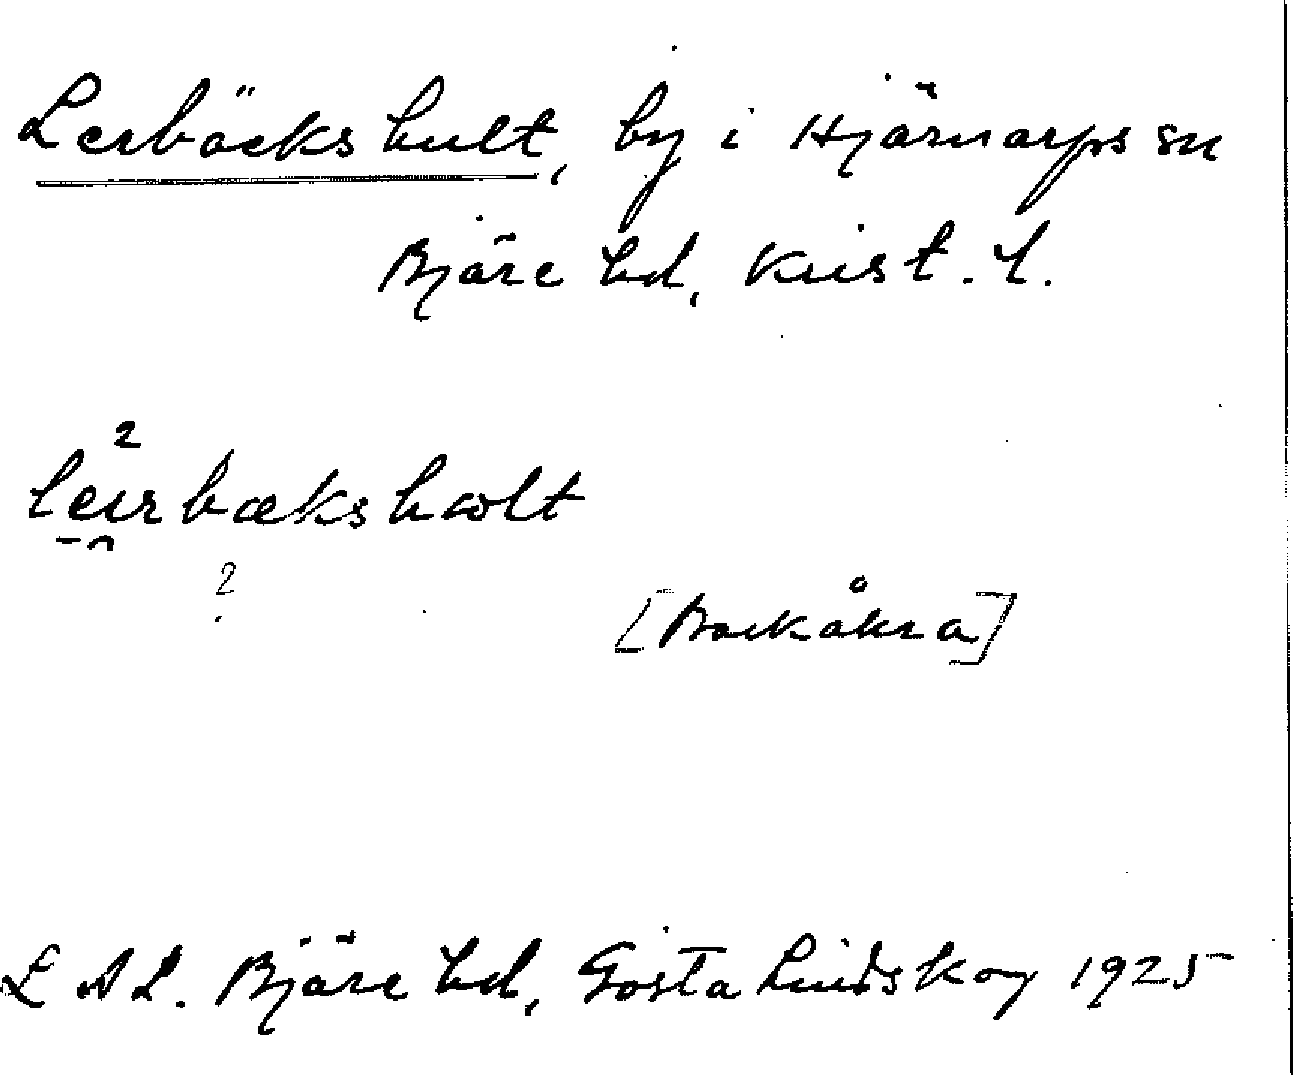 Lerbäckshult, by i Hjärnarps sn
Bjäre hd, Krist. l.
2
leirbækshωlt
?
[Backåkra]
L A L. Bjäre hd, Gösta Lindskog 1925